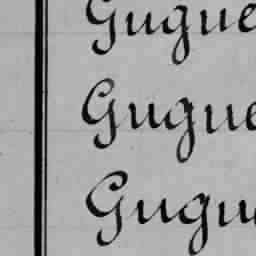 Gugue
Gugue
Gugu